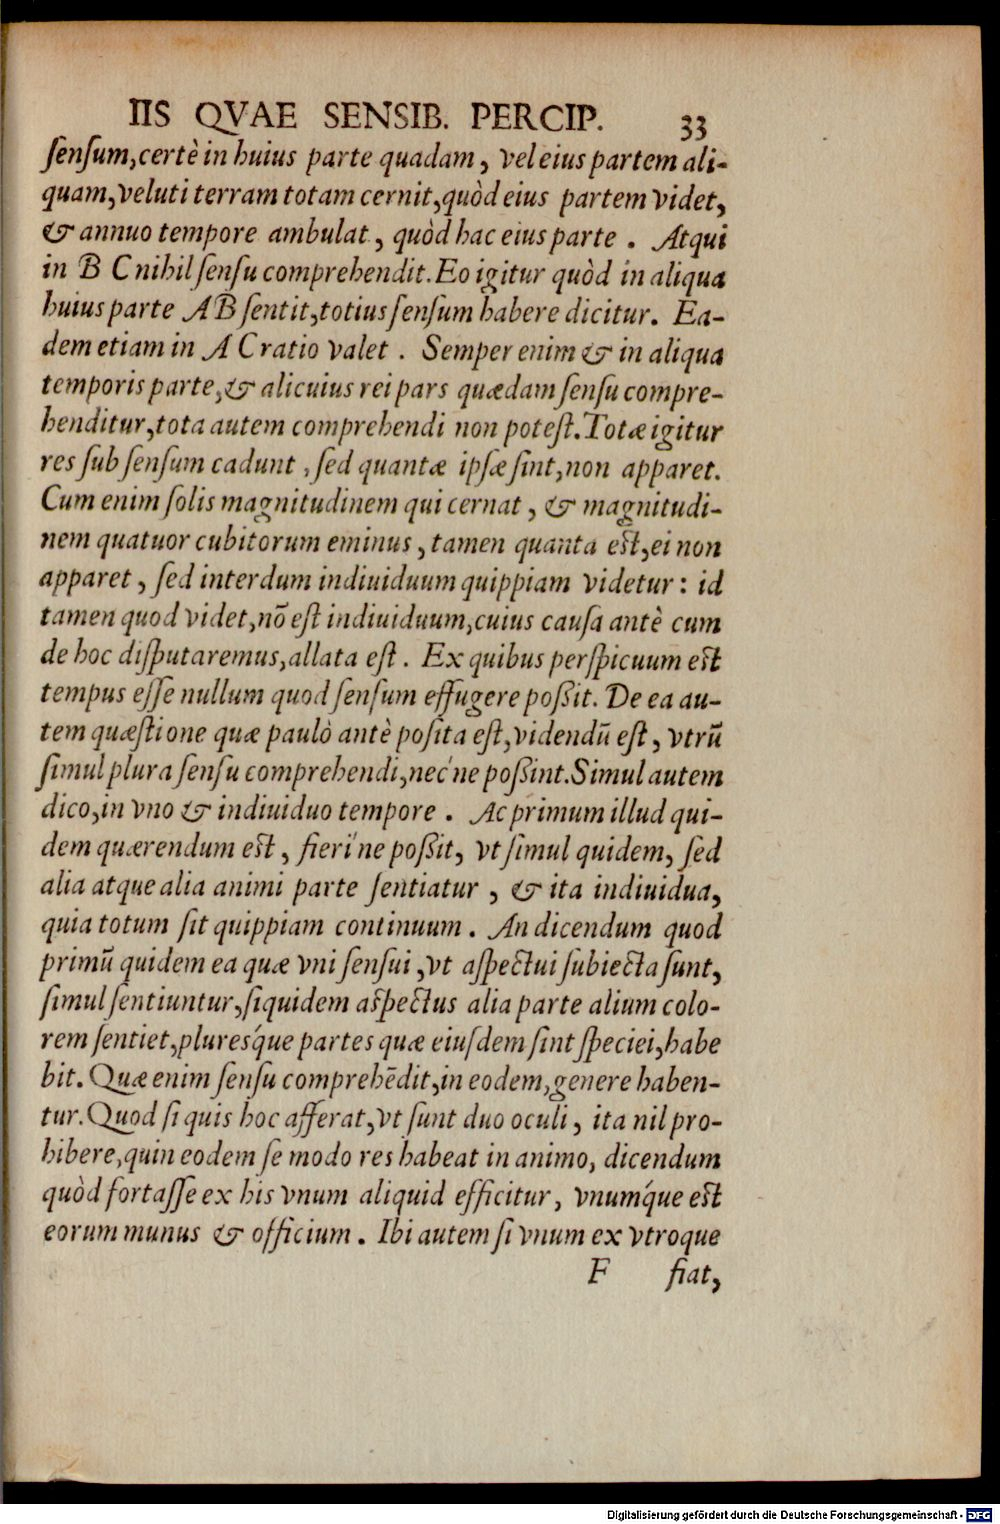 IIS QVAE SENSIB. PERCIP. 33
ſenſum, certè in huius parte quadam, vel eius partem ali-
quam, veluti terram totam cernit, quòd eius partem videt,
& annuo tempore ambulat, quòd hac eius parte. Atqui
in B C nihil ſenſu comprehendit. Eo igitur quòd in aliqua
huius parte A B ſentit, totius ſenſum habere dicitur. Ea-
dem etiam in A C ratio valet. Semper enim & in aliqua
temporis parte, & alicuius rei pars quædam ſenſu compre-
henditur, tota autem comprehendi non poteſt. Totæ igitur
res ſub ſenſum cadunt, ſed quantæ ipſæ ſint, non apparet.
Cum enim ſolis magnitudinem qui cernat, & magnitudi-
nem quatuor cubitorum eminus, tamen quanta eſt, ei non
apparet, ſed interdum indiuiduum quippiam videtur: id
tamen quod videt, nō eſt indiuiduum, cuius cauſa antè cum
de hoc diſputaremus, allata eſt. Ex quibus perſpicuum eſt
tempus eſſe nullum quod ſenſum effugere poßit. De ea au-
tem quæſtione quæ paulò antè poſita eſt, videndū eſt, vtrū
ſimul plura ſenſu comprehendi, nec'ne poßint. Simul autem
dico, in vno & indiuiduo tempore. Ac primum illud qui-
dem quærendum eſt, fieri'ne poßit, vt ſimul quidem, ſed
alia atque alia animi parte ſentiatur, & ita indiuidua,
quia totum ſit quippiam continuum. An dicendum quod
primū quidem ea quæ vni ſenſui, vt aſpectui ſubiecta ſunt,
ſimul ſentiuntur, ſiquidem aſpectus alia parte alium colo-
rem ſentiet, plureśque partes quæ eiuſdem ſint ſpeciei, habe
bit. Quæ enim ſenſu comprehēdit, in eodem, genere haben-
tur. Quod ſi quis hoc afferat, vt ſunt duo oculi, ita nil pro-
hibere, quin eodem ſe modo res habeat in animo, dicendum
quòd fortaſſe ex his vnum aliquid efficitur, vnumq́ue eſt
eorum munus & officium. Ibi autem ſi vnum ex vtroque
F fiat,
Digitalisierung gefördert durch die Deutsche Forschungsgemeinschaft - DFG